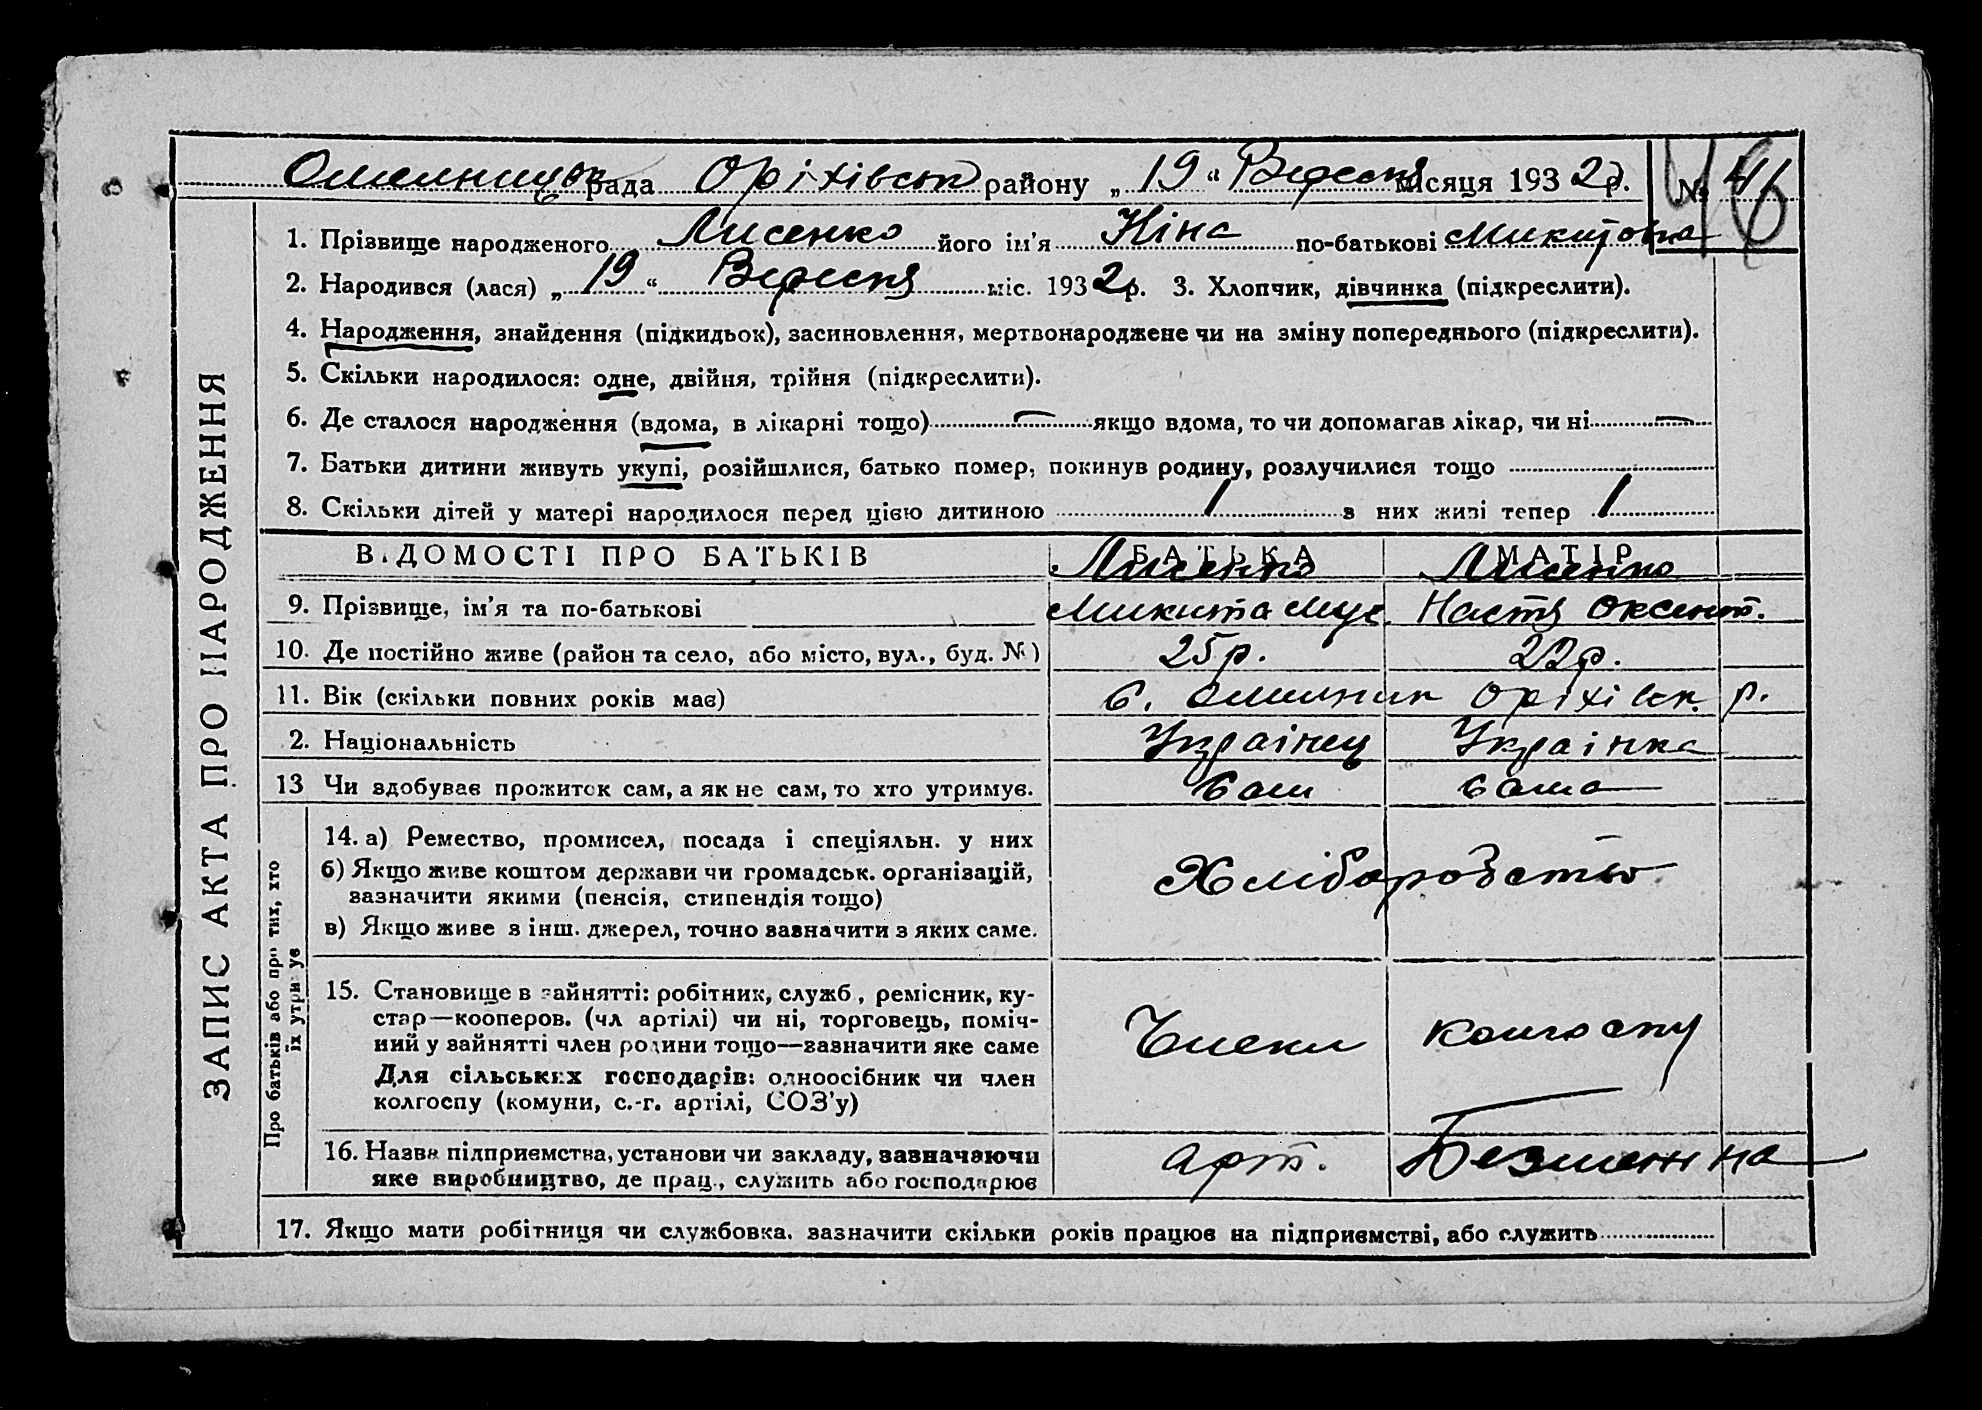 Омельницьк рада Оріхівськ району „ 19 “ Вересня місяця 1932 р. № 41
46
1. Прізвище народженого Лисенко його ім’я Ніна по-батькові Микитовна
2. Народився (лася) „ 19 “ Вересня міс. 1932 р. 3. Хлопчик, дівчинка (підкреслити).
4. Народження, знайдення (підкидьок), засиновлення, мертвонароджене чи на зміну попереднього (підкреслити).
5. Скільки народилося: одне, двійня, трійня (підкреслити).
6. Де сталося народження (вдома, в лікарні тощо) — якщо вдома, то чи допомагав лікар, чи ні —
7. Батьки дитини живуть укупі, розійшлися, батько помер, покинув родину, розлучилися тощо
8. Скільки дітей у матері народилося перед цією дитиною 1 в них живі тепер 1
ЗАПИС АКТА ПРО НАРОДЖЕННЯ
ВІДОМОСТІ ПРО БАТЬКІВ БАТЬКА МАТІР
Лисенко Лисенко
9. Прізвище, ім’я та по-батькові Микита Мус. Настя Оксент.
10. Де постійно живе (район та село, або місто, вул., буд. №) 25 р. 22 р.
11. Вік (скільки повних років має) с. Омельник Оріхівськ. р.
2. Національність Українец Українка
13 Чи здобуває прожиток сам, а як не сам, то хто утримує. Сам сама
Про батьків або про тих, хто їх утримує
14. а) Ремество, промисел, посада і спеціяльн. у них
б) Якщо живе коштом держави чи громадськ. організацій,
зазначити якими (пенсія, стипендія тощо)
Хліборобство
в) Якщо живе з інш. джерел, точно зазначити з яких саме.
15. Становище в зайнятті: робітник, служб., ремісник, ку-
стар—кооперов. (чл артілі) чи ні, торговець, поміч-
ний у зайнятті член родини тощо—зазначити яке саме
Члени колгоспу
Для сільських господарів: одноосібник чи член
колгоспу (комуни, с.-г. артілі, СОЗ’у)
16. Назва підприємства, установи чи закладу, зазначаючи
яке виробництво, де прац., служить або господарює
арт.
17. Якщо мати робітниця чи службовка, зазначити скільки років працює на підприємстві, або служить